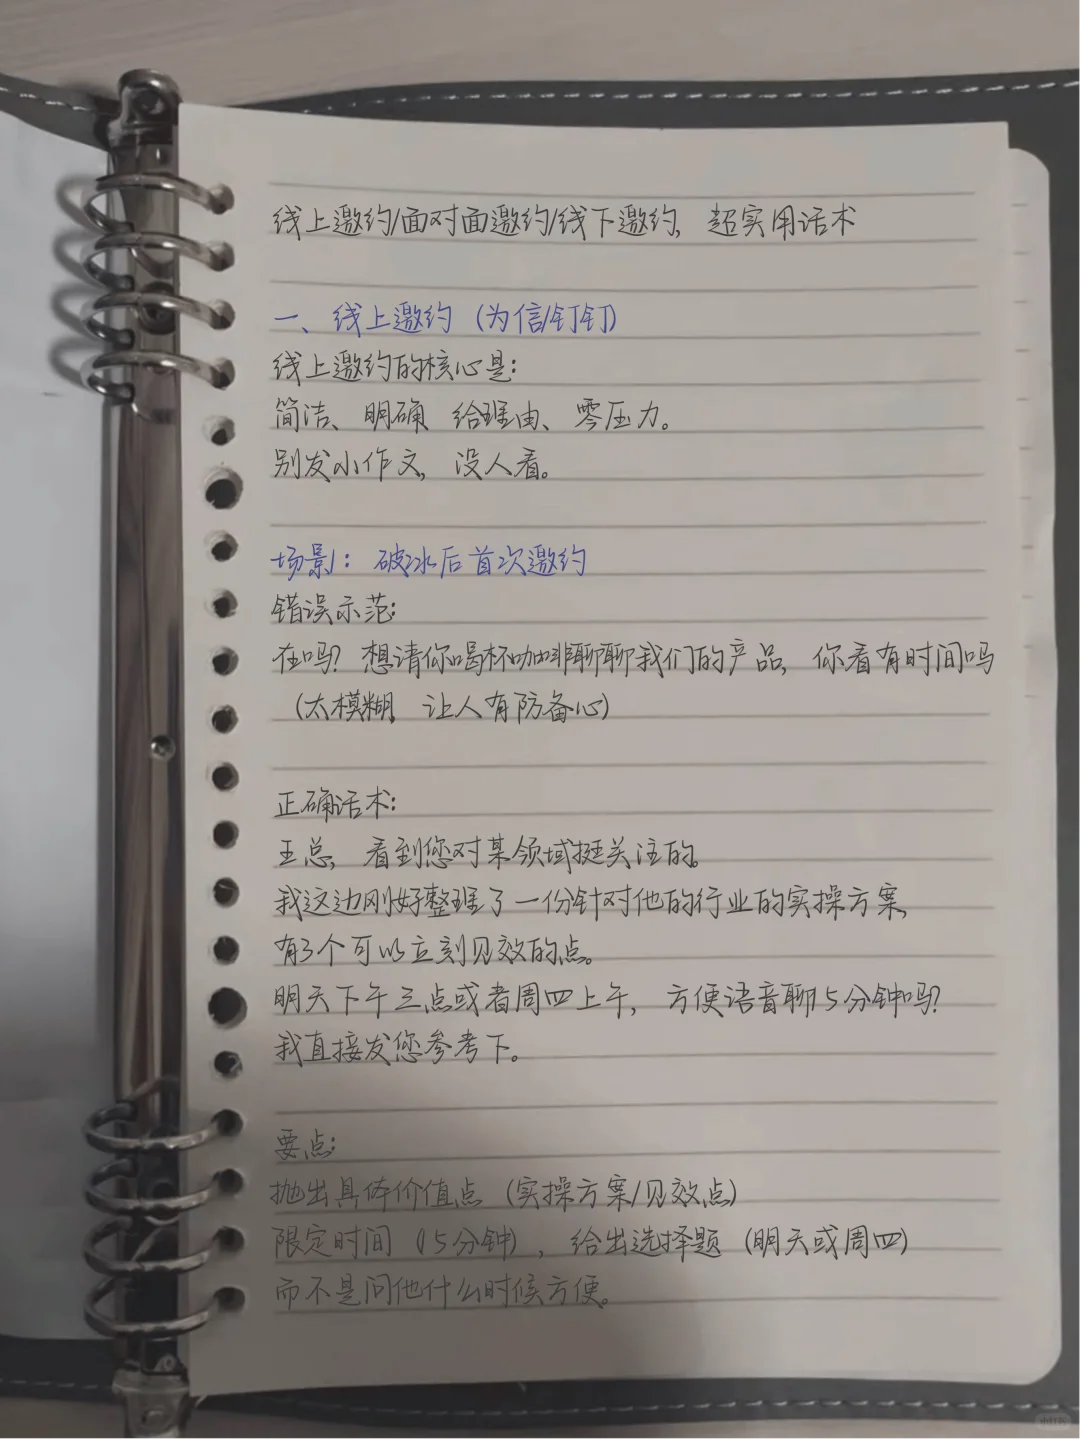 线上邀约/面对面邀约/线下邀约，超实用话术
一、线上邀约（为信/钉钉）
线上邀约的核心是：
简洁、明确 给理由、零压力。
别发小作文，没人看。
场景1：破冰后首次邀约
错误示范：
在吗？想请你喝杯咖啡聊聊我们的产品，你看有时间吗
（太模糊，让人有防备心）
正确话术：
王总，看到您对某领域挺关注的。
我这边刚好整理了一份针对他的行业的实操方案，
有3个可以立刻见效的点。
明天下午三点或者周四上午，方便语音聊15分钟吗？
我直接发您参考下。
要点：
抛出具体价值点（实操方案/见效点）
限定时间（15分钟），给出选择题（明天或周四）
而不是问他什么时候方便。